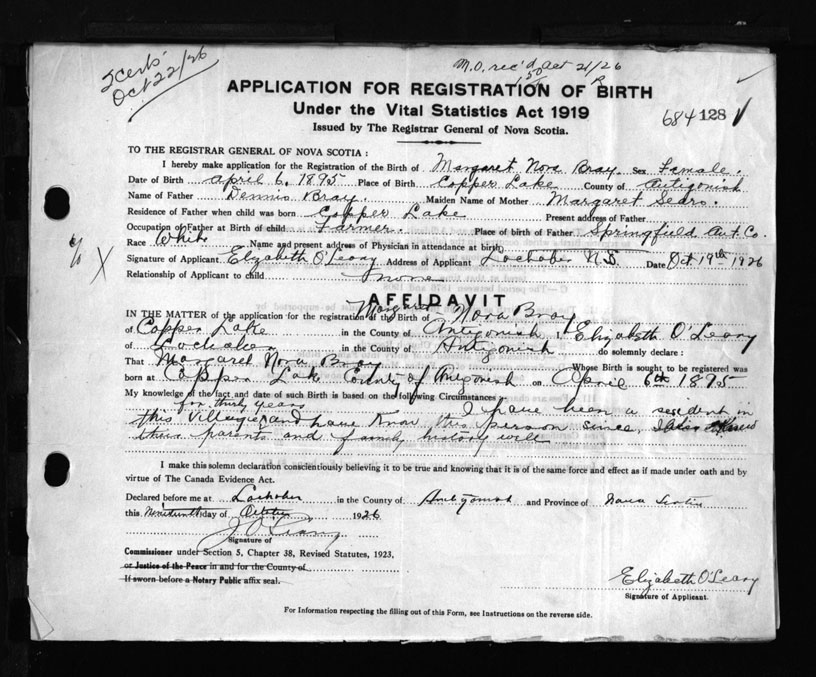 2 certs M.O. rec'd Oct 21/26
Oct 22/26 1.50 R
APPLICATION FOR REGISTRATION OF BIRTH
Under the Vital Statistics Act 1919
Issued by The Registrar General of Nova Scotia.
684 128
TO THE REGISTRAR GENERAL OF NOVA SCOTIA :
I hereby make application for the Registration of the Birth of Margaret Nora Bray. Sex Female.
Date of Birth April 6, 1895 Place of Birth Copper Lake County of Antigonish
Name of Father Dennis Bray. Maiden Name of Mother Margaret Sears.
Residence of Father when child was born Copper Lake Present address of Father
Occupation of Father at Birth of child Farmer. Place of birth of Father Springfield Ant. Co.
Race White Name and present address of Physician in attendance at birth
Signature of Applicant Elizabeth O'Leary Address of Applicant Lochaber N.S. Date Oct 19th 1926
Relationship of Applicant to child none
X
AFFIDAVIT
IN THE MATTER of the application for the registration of the Birth of Margaret Nora Bray
of Copper Lake in the County of Antigonish I, Elizabeth O'Leary
of Lochaber in the County of Antigonish do solemnly declare :
That Margaret Nora Bray Whose Birth is sought to be registered was
born at Copper Lake County of Antigonish on April 6th 1895
My knowledge of the fact and date of such Birth is based on the following Circumstances
for thirty years I have been a resident in
this Village and have know this person since,
their parents and family history well
I make this solemn declaration conscientiously believing it to be true and knowing that it is of the same force and effect as if made under oath and by
virtue of The Canada Evidence Act.
Declared before me at Lochaber in the County of Antigonish and Province of Nova Scotia
this Nineteenth day of October 1926
J O'Leary
Signature of
Commissioner under Section 5, Chapter 38, Revised Statutes, 1923,
or Justice of the Peace in and for the County of
If sworn before a Notary Public affix seal.
Elizabeth O'Leary
Signature of Applicant.
For Information respecting the filling out of this Form, see Instructions on the reverse side.